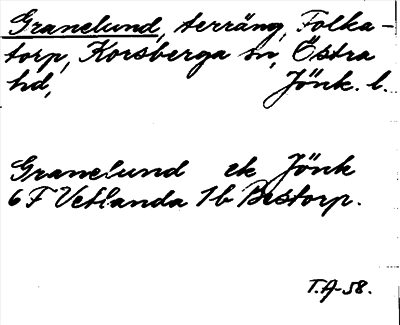 Granelund, terräng, Folka-
torp, Korsberga sn, Östra
hd, Jönk. l.
Granelund ek Jönk
6 F Vetlanda 1b Bestorp.
T.A-58.